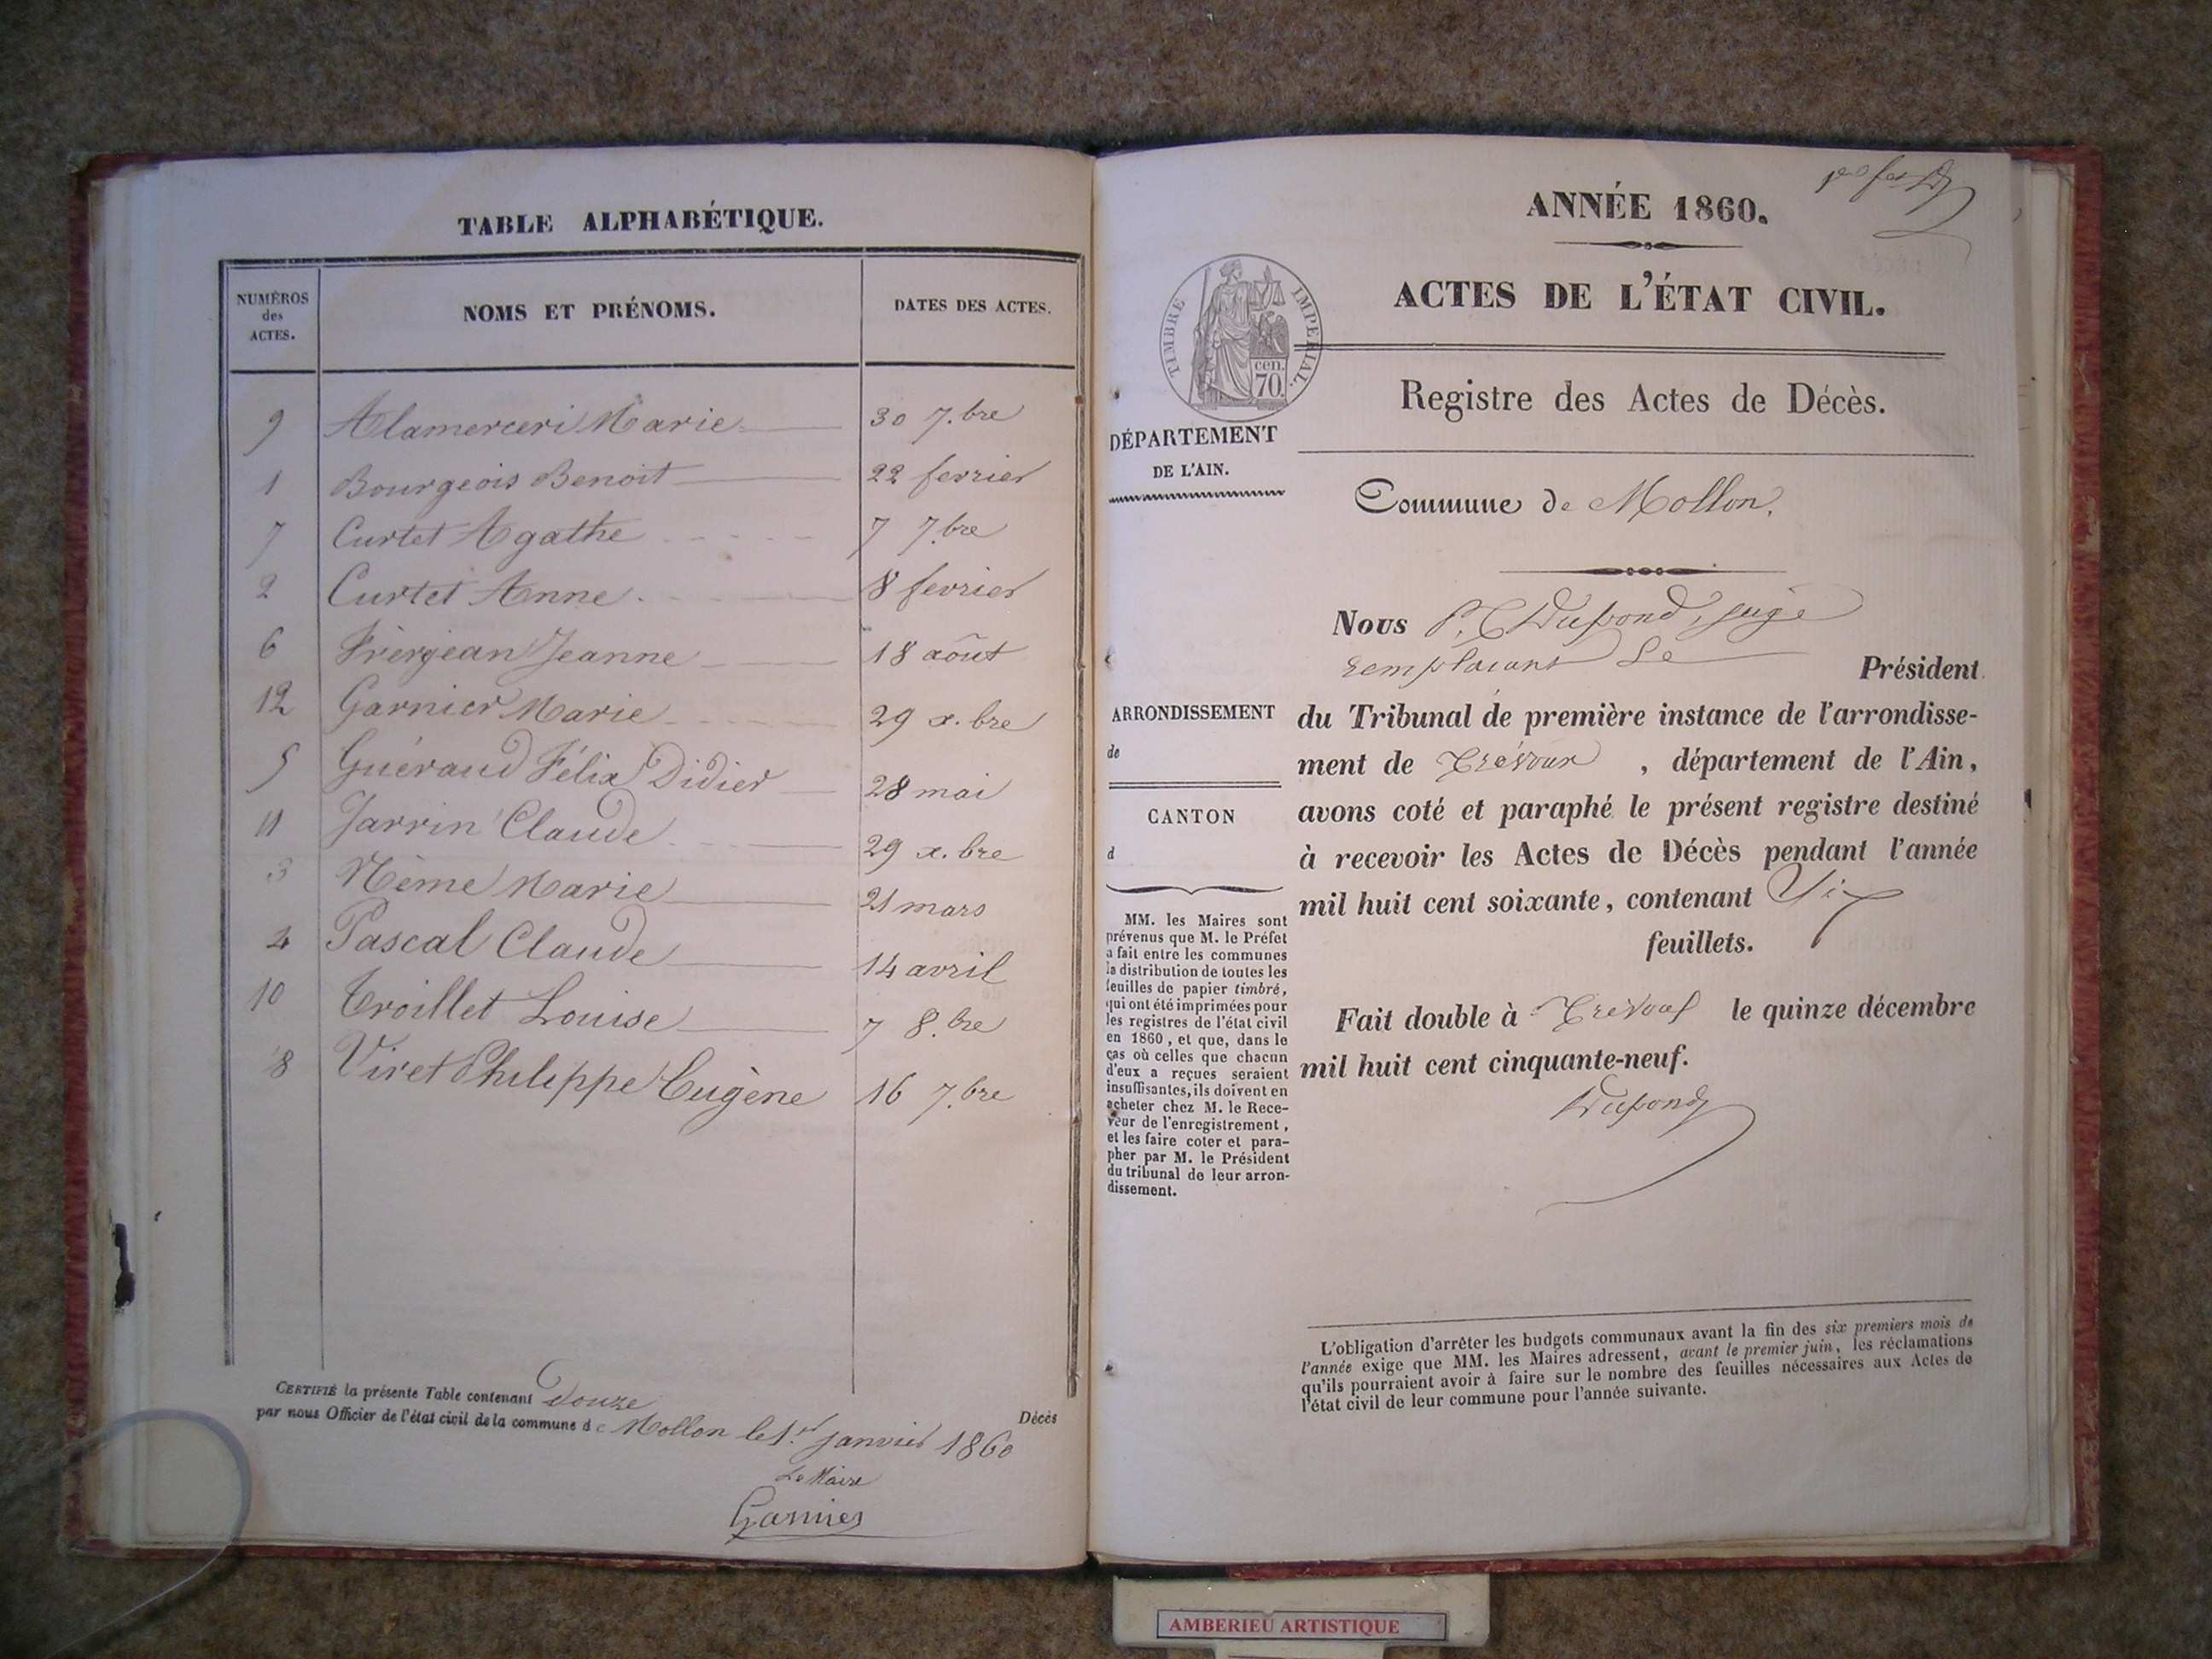 TABLE ALPHABÉTIQUE.
NUMÉROS des ACTES. NOMS ET PRÉNOMS. DATES DES ACTES.
9 Alamerceri Marie 30 7.bre
1 Bourgeois Benoit 22 fevrier
7 Curtet Agathe 7 7.bre
2 Curtet Anne 8 fevrier
6 Frèrgean Jeanne 18 août
12 Garnier Marie 29 x.bre
5 Guéraud Félix Didier 28 mai
11 Jarrin Claude 29 x.bre
3 Même Marie 21 mars
4 Pascal Claude 14 avril
10 Troillet Louise 7 8.bre
8 Viret Philippe Eugène 16 7.bre
CERTIFIÉ la présente Table contenant Douze Décès
par nous Officier de l'état civil de la commune de Mollon le 1.er janvier 1860
Le Maire
Garnier
ANNÉE 1860.
ACTES DE L'ÉTAT CIVIL.
TIMBRE IMPERIAL.
cen.
70.
Registre des Actes de Décès.
DÉPARTEMENT
DE L'AIN.
Commune de Mollon.
Nous Dupond, juge
remplaçant le Président
ARRONDISSEMENT
de
CANTON
d
du Tribunal de première instance de l'arrondisse-
ment de Trévoux, département de l'Ain,
avons coté et paraphé le présent registre destiné
à recevoir les Actes de Décès pendant l'année
mil huit cent soixante, contenant Six
feuillets.
Fait double à Trévoux le quinze décembre
mil huit cent cinquante-neuf.
Dupond
MM. les Maires sont
prévenus que M. le Préfet
a fait entre les communes
la distribution de toutes les
feuilles de papier timbré,
qui ont été imprimées pour
les registres de l'état civil
en 1860, et que, dans le
cas où celles que chacun
d'eux a reçues seraient
insuffisantes, ils doivent en
acheter chez M. le Rece-
veur de l'enregistrement,
et les faire coter et para-
pher par M. le Président
du tribunal de leur arron-
dissement.
L'obligation d'arrêter les budgets communaux avant la fin des six premiers mois de
l'année exige que MM. les Maires adressent, avant le premier juin, les réclamations
qu'ils pourraient avoir à faire sur le nombre des feuilles nécessaires aux Actes de
l'état civil de leur commune pour l'année suivante.
AMBERIEU ARTISTIQUE